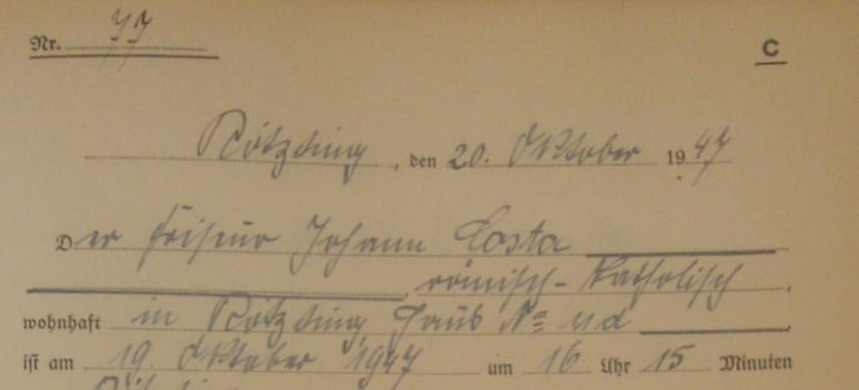 Nr. 77
C
Kötzting, den 20. Oktober 1947
Der Friseur Johann Costa
, römisch-katholisch,
wohnhaft in Kötzting Haus Nº
ist am 19. Oktober 1947 um 16 Uhr 15 Minuten